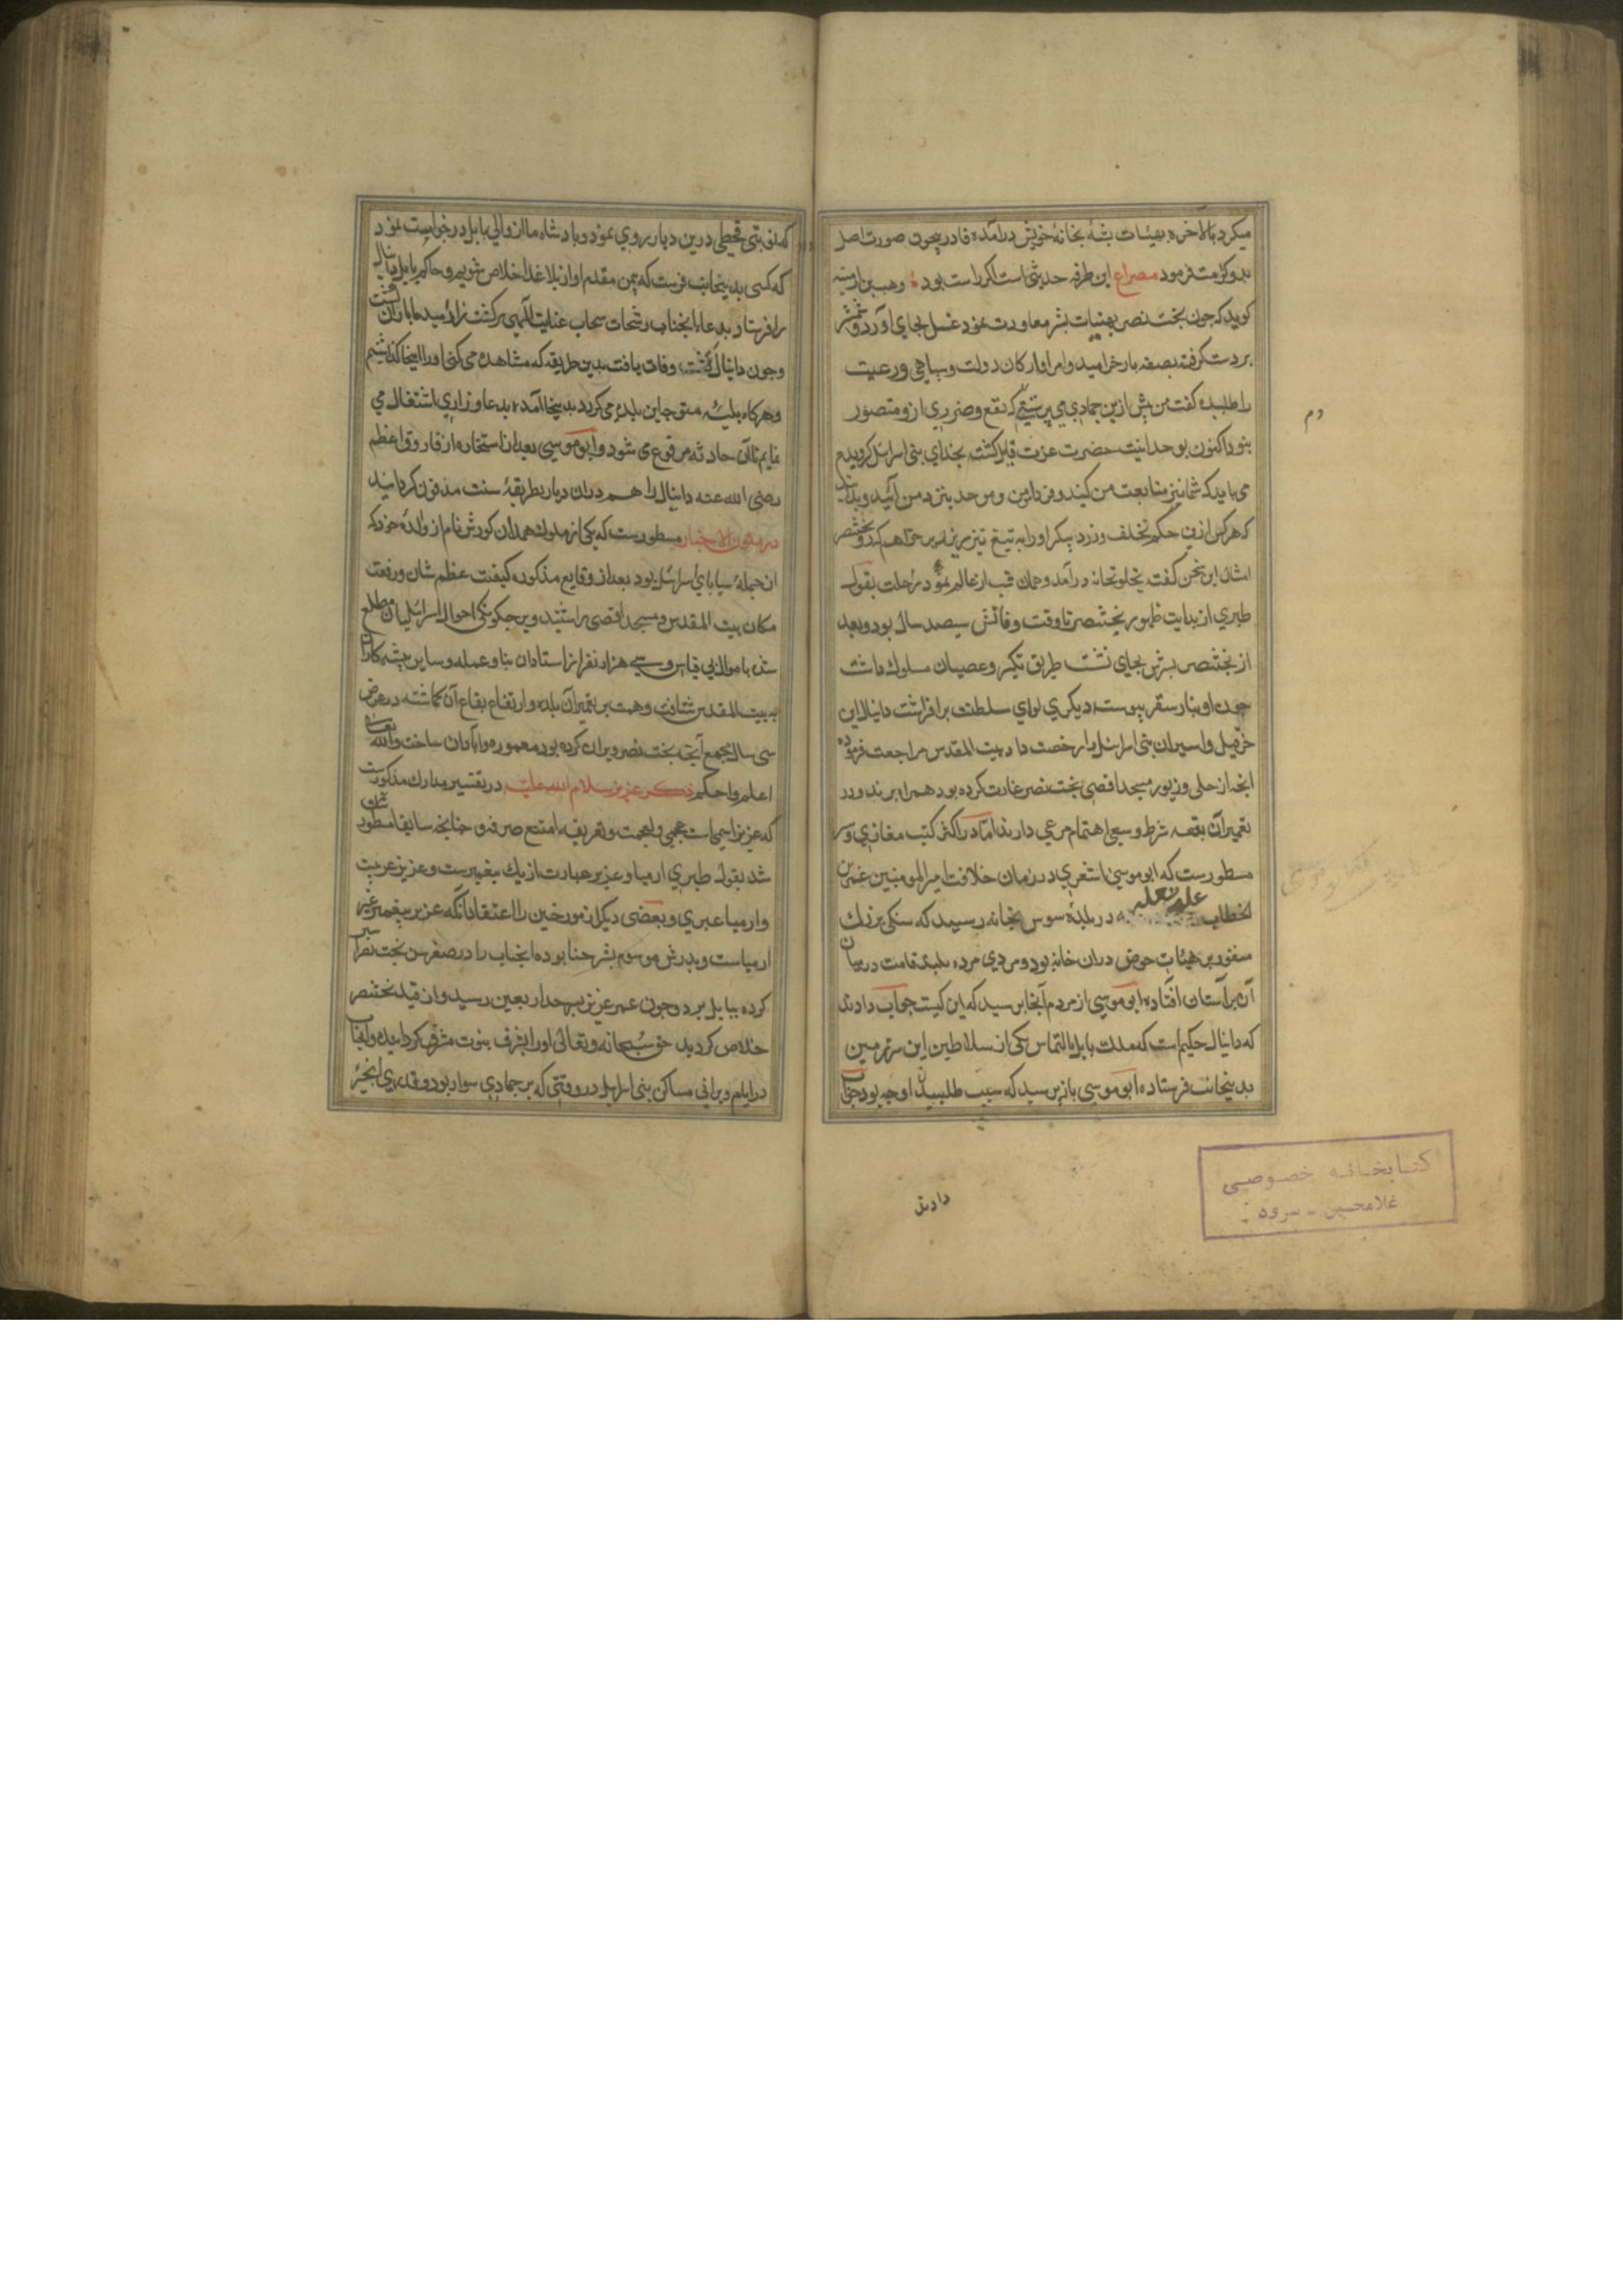 میکرد بالاخره بهیئات بشه بخانهٔ خویش درآمده قادر بیچون صورت اصل
بدو کرامت فرمود مصراع این طرفه حدیثی است اکر راست بود وهب بن
کوید که چون بخت نصر بهیئات بشر معاودت نمود غسل بجای آورد و شمشیر
بر دست کرفته بصفه بار خرامید و امرا و ارکان دولت و سپاهی و رعیت
را طلبیده کفت من پیش ازین جمادی می پرستیدم که نفع و ضرری ازو متصور
نبود اکنون بوحدانیت حضرت عزت قایل کشته بخدای بنی اسرائیل کرویدم
می باید که شما نیز متابعت من کنید و مرد و زن نزد من آیید و بدانید
که هر کس ازین حکم تخلف ورزد پیکر او را به تیغ تیز ریز ریز خواهم کرد و بختنصر
امثال این سخن کفته بخلوتخانه درآمد و همان شب از عالم نمود رحلت بقول
طبری از بدایت ظهور بختنصر تا وقت وفاتش سیصد سال بود و بعد
از بختنصر پسرش بجای نشست طریق تکبر و عصیان مسلوک داشت
چون او بنار سقر پیوست دیکری لوای سلطنت برافراشت دانیال این
حزقیل و اسیران بنی اسرائیل را رخصت داد به بیت المقدس مراجعت فرموده
آنچه از حلی و زیور مسجد اقصی بخت نصر غارت کرده بود همراه برند و در
تعمیر آن بقعه شرط سعی و اهتمام مرعی دارند اما در اکثر کتب مغازی و سیر
مسطورست که ابو موسی اشعری در زمان خلافت امیرالمومنین عمر بن
الخطاب در بلدهٔ سوس بخانه رسید که سنکی بزرک
منقور بر هیئات حوض دران خانه بود و مردی مرده بلند قامت در میان
آن بر آستان افتاده ابو موسی از مردم آنجا پرسید که این کیست جواب دادند
که دانیال حکیم است که ملک بابل بالتماس یکی از سلاطین این سرزمین
بدینجانب فرستاده ابو موسی باز پرسید که سبب طلبیدن او چه بود جواب
دادند
که نوبتی قحطی درین دیار روی نمود و بادشاه ما از والی بابل درخواست نمود
که کسی بدینجانب فرست که بیمن مقدم او از بلا غلا خلاص شویم و حاکم بابل دانیال
را فرستاد بدعاء آنجناب رشحات سحاب عنایت الهی بر کشت زار امید ما باران کشت
و چون دانیال وفات یافت بدین طریقه که مشاهده می کنی او را اینجا کذاشتیم
و هرکاه بلیه متوجه این بلده می کردد بدینجا آمده بدعا و زاری اشتغال می
نمایم تا آن حادثه مرفوع می شود و ابو موسی بعد از استخاره از فاروق اعظم
رضی الله عنه دانیال را هم دران دیار بطریقهٔ سنت مدفون کردانید
در متون الاخبار مسطورست که یکی از ملوک همدان کورش نام از والدهٔ خود که
از جملهٔ سبایای اسرائیل بود بعد از وقایع مذکوره کیفیت عظم شان و رفعت
مکان بیت المقدس و مسجد اقصی را شنید و بر چکونکی احوال اسرائیلیان مطلع
شده با موال بی قیاس و سی هزار نفر از استادان بنا و عمله و سایر پیشه کاران
به بیت المقدس شتافت و همت بر تعمیر آن بلده و ارتفاع بقاع آن کماشته در عرض
سی سال مجموع آنچه بخت نصر ویران کرده بود معموره و آبادان ساخت والله تعالی
اعلم و احکم ذکر عزیر سلام الله علیه در تفسیر مدارک مذکورست
که عزیر اسمی است عجمی و لعجمت و تعریفه امتنع صرفه و چنانچه سابقا مسطور
شد بقول طبری ارمیا و عزیر عبارت از یک پیغمبرست و عزیر عربیت
و ارمیا عبری و بعضی دیکر از مورخین را اعتقاد آنکه عزیر پیغمبر غیر
ارمیاست و پدرش موسوم بشرحیا بوده آنجناب را در صغر سن بخت نصر اسیر
کرده ببابل برد و چون عمر عزیز بسرحد اربعین رسید و از قید بختنصر
خلاص کردید حق سبحانه و تعالی او را بشرف نبوت مشرف کردانیده و آنجناب
در ایام ویرانی مساکن بنی اسرائیل در وقتی که بر حماری سوار بود و قدری انجیر
کتابخانه خصوصی
غلامحسین - سرود